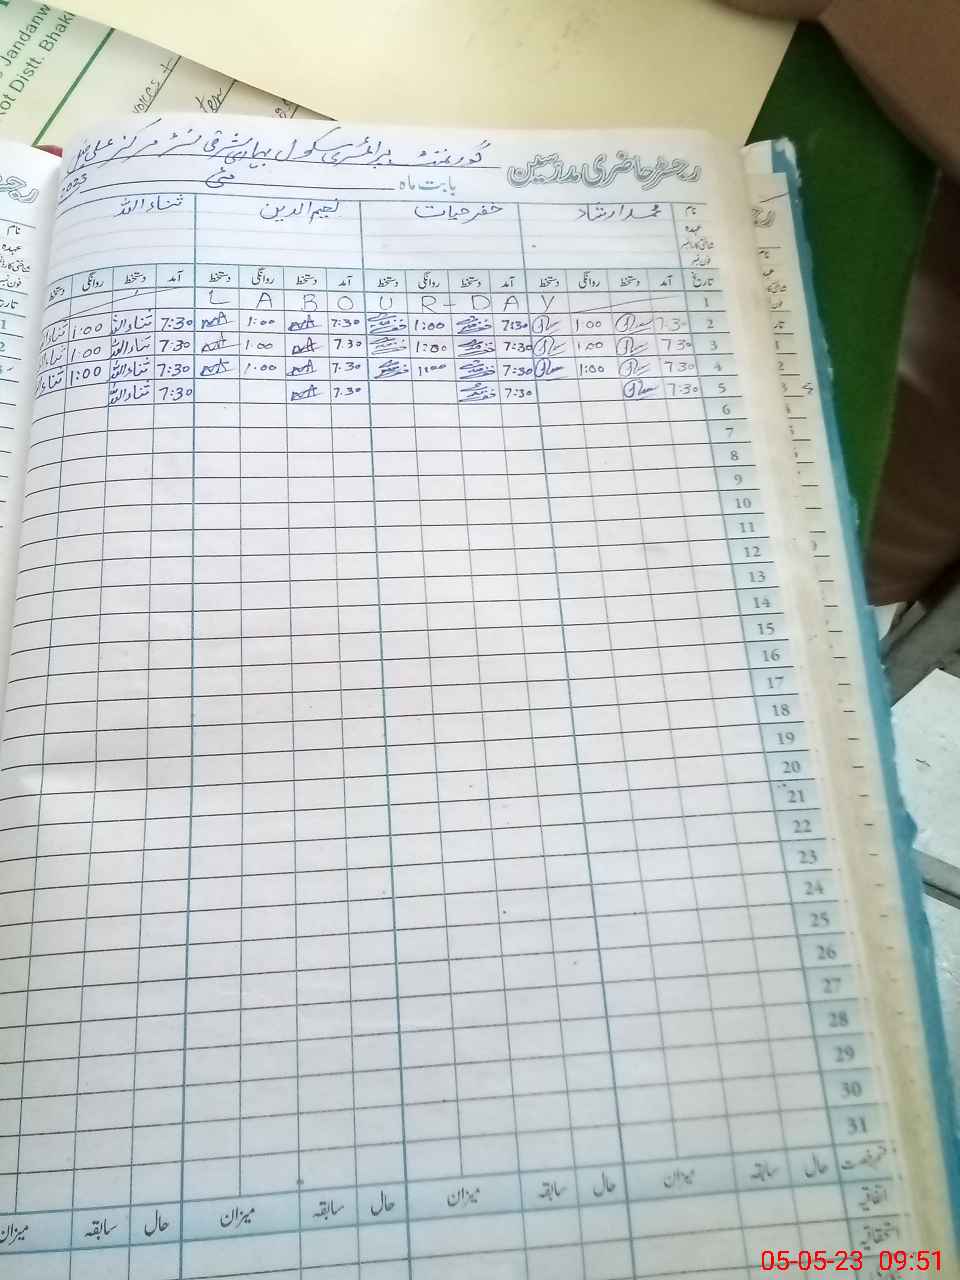 Jandanw
Kot Distt. Bhakk
رجسٹر حاضری مدرسین گورنمنٹ پرائمری سکول
بابت ماہ مئی 2023
نام محمد ارشاد خضر حیات نجیم الدین ثناء اللہ
عہدہ
شناختی کارڈ نمبر
فون نمبر
تاریخ آمد دستخط روانگی دستخط آمد دستخط روانگی دستخط آمد دستخط روانگی دستخط آمد دستخط روانگی دستخط
1 LABOUR-DAY
2 7:30 1:00 7:30 1:00 7:30 1:00 7:30 ثناء اللہ 1:00 ثناء اللہ
3 7:30 1:00 7:30 1:00 7:30 1:00 7:30 ثناء اللہ 1:00 ثناء اللہ
4 7:30 1:00 7:30 1:00 7:30 1:00 7:30 ثناء اللہ 1:00 ثناء اللہ
5 7:30 7:30 7:30 7:30 ثناء اللہ
6
7
8
9
10
11
12
13
14
15
16
17
18
19
20
21
22
23
24
25
26
27
28
29
30
31
قسم رخصت حال سابقہ میزان حال سابقہ میزان حال سابقہ میزان حال سابقہ میزان
اتفاقیہ
استحقاقیہ
05-05-23 09:51